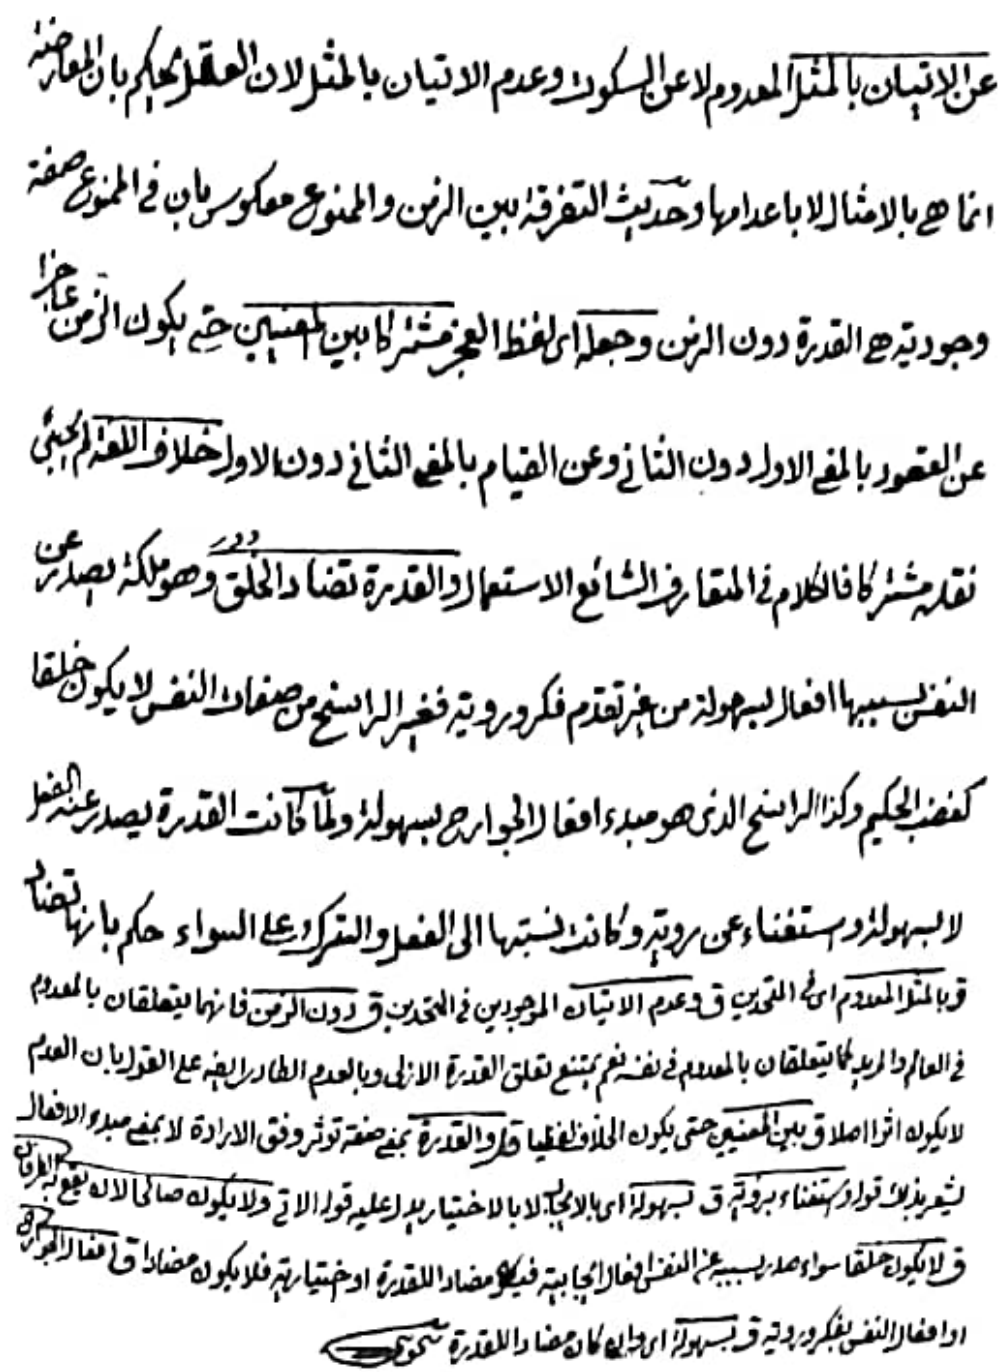 عن الاتيان بالمثل المعدوم لا عن السكوت وعدم الاتيان بالمثل لان العقل يحكم بان المعارضة
انما هى بالامثال لا باعدامها وحديث التفرقة بين الزمن والممنوع معكوس بان فى الممنوع صفة
وجودية هى القدرة دون الزمن وجعله اى لفظ العجز مشتركا بين المعنيين حتى يكون الزمن عاجزا
عن القعود بالمعنى الاول دون الثانى وعن القيام بالمعنى الثانى دون الاول خلاف اللغة لم يجئ
نقله مشتركا فالكلام فى المتعارف الشائع الاستعمال والقدرة تضاد الخلق وهو ملكة يصدر عن
النفس بسببها افعال بسهولة من غير تقدم فكر وروية فغير الراسخ من صفات النفس لا يكون خلقا
كغضب الحكيم وكذا الراسخ الذى هو مبدء افعال الجوارح بسهولة ولما كانت القدرة يصدر عنه الفعل
لا بسهولة واستغناء عن روية وكانت نسبتها الى الفعل والترك على السواء حكم بانها تضاد
ق بالمثل المعدوم اى فى المتحدين ق وعدم الاتيان الموجودين فى المتحدين ق دون الزمن فانهما يتعلقان بالمعدوم
فى العالم والمريد كما يتعلقان بالمعدوم فى نفسه نعم يمتنع تعلق القدرة الازلى وبالعدم الطارى ايضا على القول بان العدم
لا يكون اثرا اصلا ق بين المعنيين حتى يكون الخلاف لفظيا ق والقدرة بمعنى صفة تؤثر وفق الارادة لا بمعنى مبدء الافعال
يشعر بذلك قوله واستغناء بروية ق بسهولة اى بالايجاب لا بالاختيار يدل عليه قوله الاتى ولا يكون صالحا لان يقع به الطرفان
ق لا يكون خلقا سواء صدر بسببه عن النفس افعال ايجابية مضادا للقدرة او اختيارية فلا يكون مضادا ق افعال الجوارح
او افعال النفس بفكر وروية ق بسهولة اى وان كان مضادا للقدرة